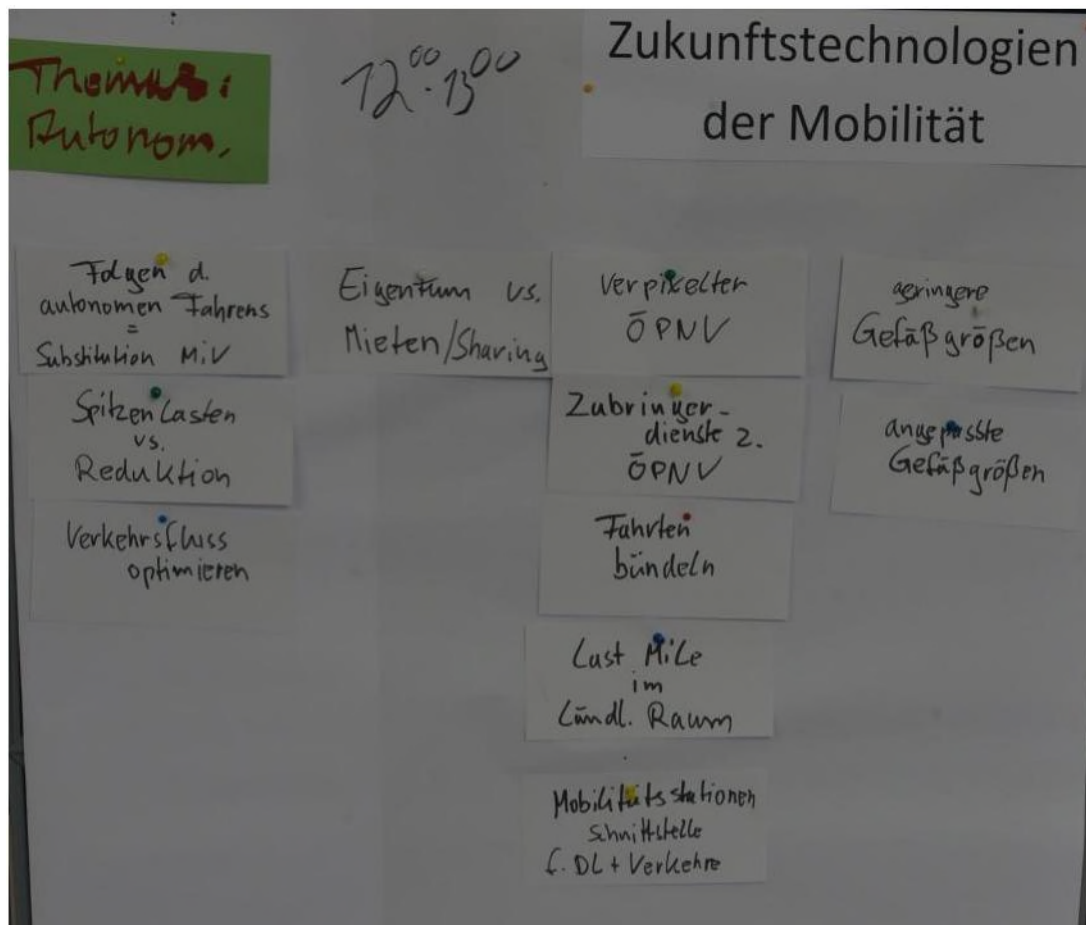 Thema:
Autonom.
12⁰⁰-13⁰⁰
Zukunftstechnologien
der Mobilität
Folgen d.
autonomen Fahrens
=
Substitution MiV
Spitzenlasten
vs.
Reduktion
Verkehrsfluss
optimieren
Eigentum vs.
Mieten/Sharing
Verpixelter
ÖPNV
Zubringer-
dienste z.
ÖPNV
Fahrten
bündeln
Last Mile
im
Ländl. Raum
Mobilitätsstationen
Schnittstelle
f. DL + Verkehre
geringere
Gefäßgrößen
angepasste
Gefäßgrößen